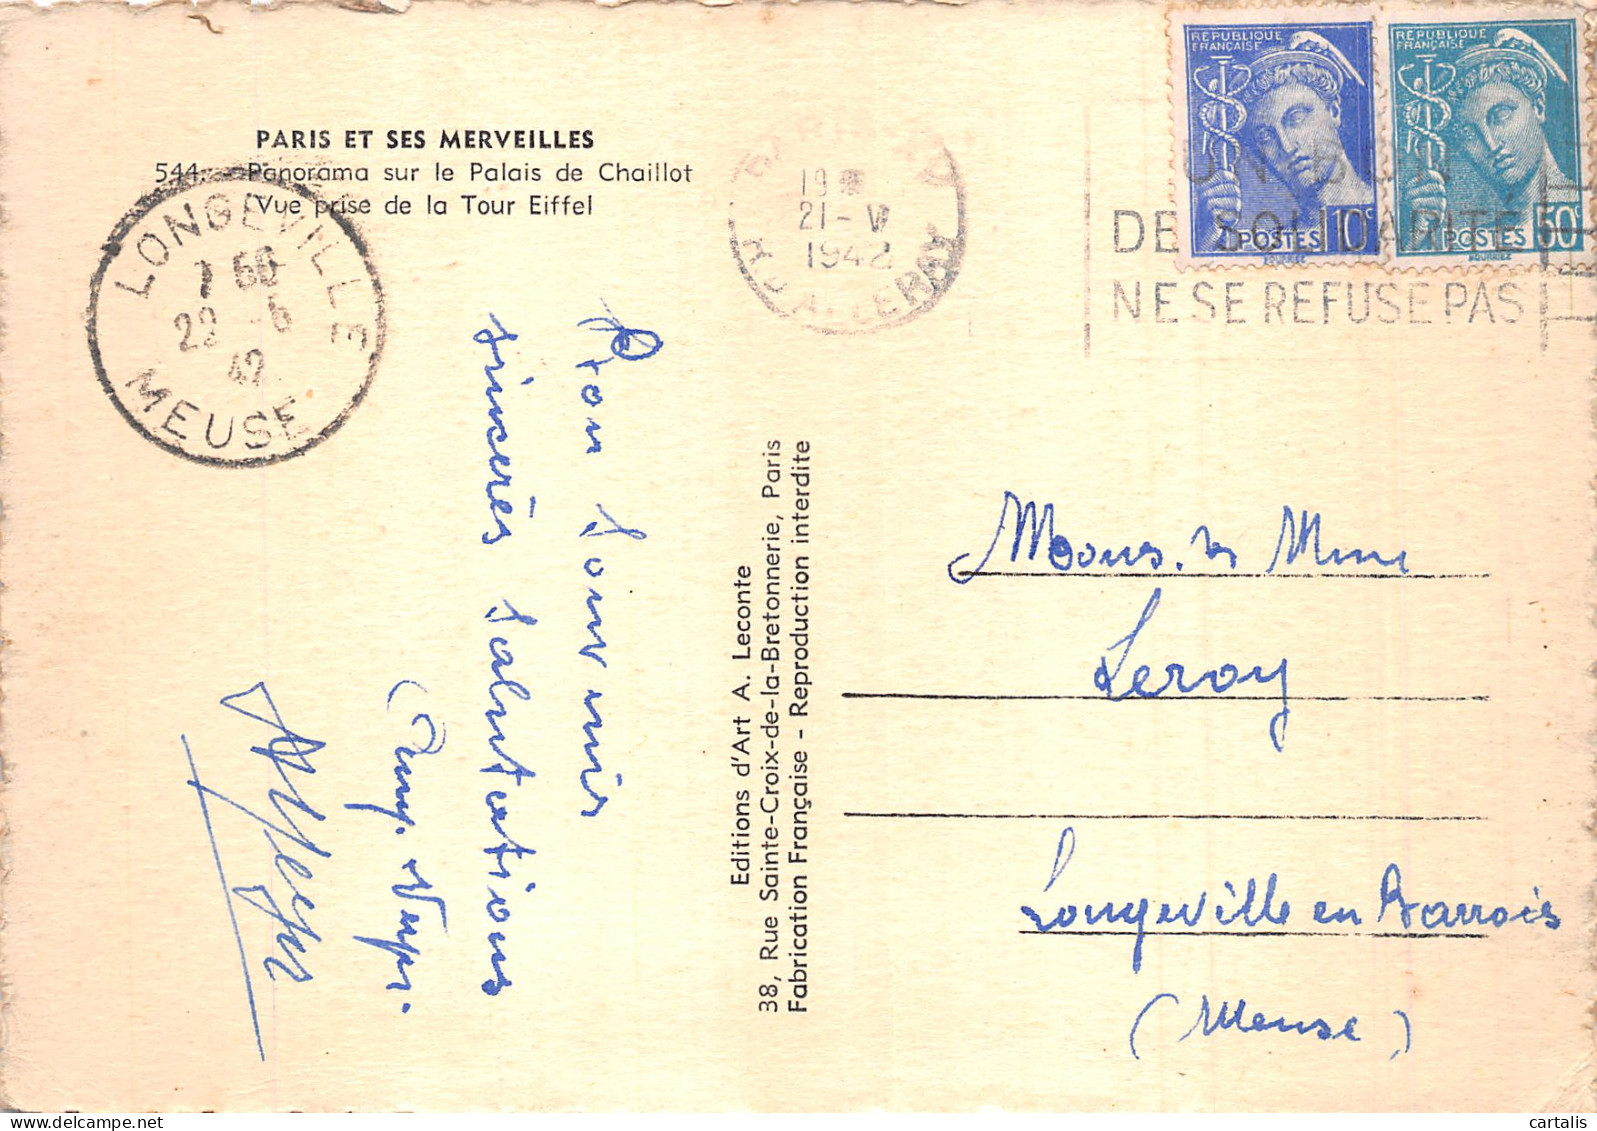 PARIS ET SES MERVEILLES
544. - Panorama sur le Palais de Chaillot
Vue prise de la Tour Eiffel
LONGEVILLE
7 50
22 -5
42
MEUSE
19
21-V
1942
R. DU A. LERAY
REPUBLIQUE
FRANÇAISE
POSTES 10c
REPUBLIQUE
FRANÇAISE
POSTES 50c
DE SOLIDARITÉ
NE SE REFUSE PAS
Bon Souvenir
sincères Salutations
Editions d'Art A. Leconte
38, Rue Sainte-Croix-de-la-Bretonnerie, Paris
Fabrication Française - Reproduction interdite
Mme
Leroy
Longeville en Barrois
(Meuse)
cartalis